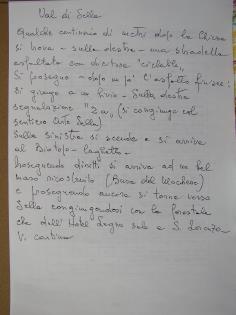 Val di Sella
Qualche centinaio di metri dopo la Chiesa
si trova - sulla destra - una stradella
asfaltata con dicitura "ciclabile".
Si prosegue - dopo un po' l'asfalto finisce:
si giunge a un bivio - Sulla destra
segnalazione "2a", (si congiunge col
sentiero Cinte Sella)
Sulla sinistra si scende e si arriva
al Biotopo - laghetto -
Proseguendo diritti si arriva ad un bel
maso ricostruito (Busa del Mochene)
e proseguendo ancora si torna verso
Sella congiungendosi con la forestale
che dall'Hotel Legno sale a S. Lorenzo.
V. cartina